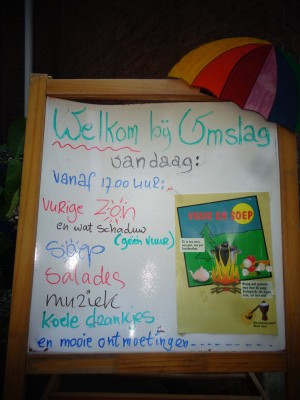 Welkom bij Omslag
vandaag:
vanaf 17.00 uur:
vurige zon
en wat schaduw
(géén vuur)
soep
salades
muziek
koele drankjes
en mooie ontmoetingen----------
VUUR EN SOEP